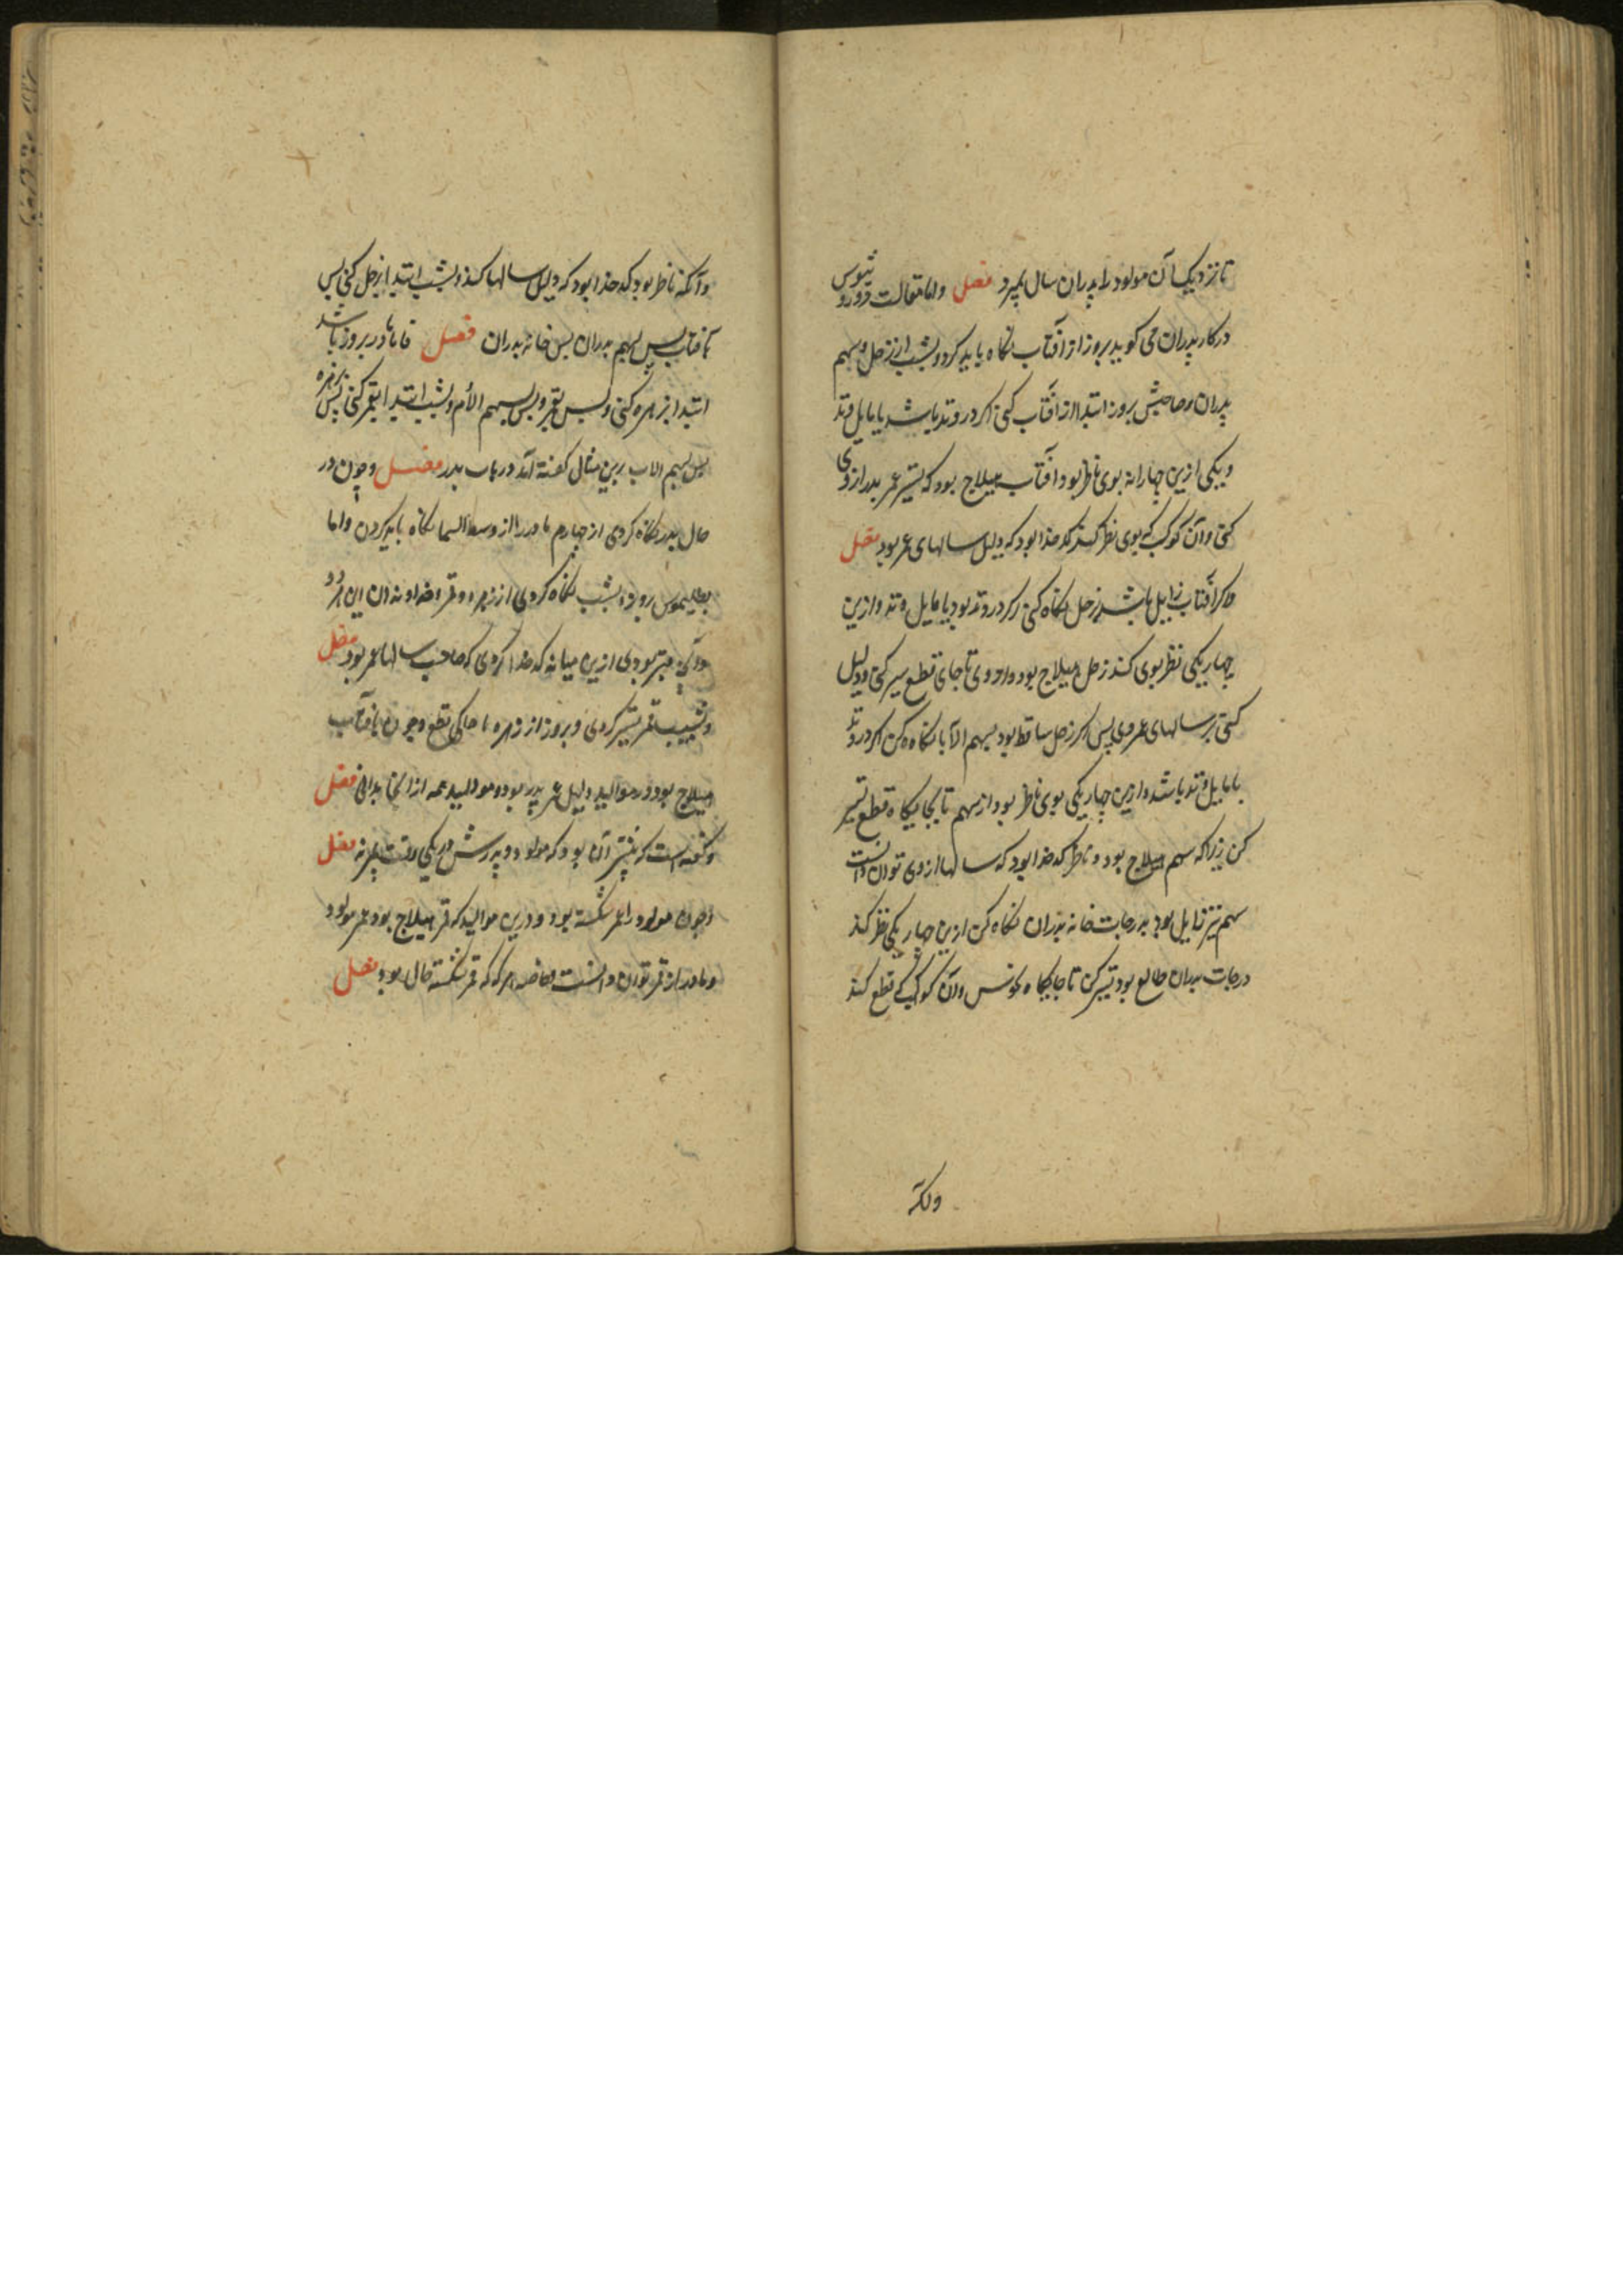 تا نزدیک آن مولود را پدران سال بمیرد فصل واما مقالت دورو ثیوس
درکار پدران می کوید بروز از آفتاب نکاه باید کرد و بشب از زحل وسهم
پدران وصاحبش بروز ابتدا از آفتاب کنی اکر در وتد باشد یا مایل وتد
ویکی ازین چهارانه بوی ناظر بود آفتاب هیلاج بود که تسیر عمر پدر ازوی
کنی وآن کوکب که بوی نظر کند کدخدا بود که دلیل سالهای عمر بود فصل
واکر آفتاب زایل باشد بزحل نکاه کنی اکر در وتد بود یا مایل وتد وازین
چهار یکی نظر بوی کند زحل هیلاج بود واز وی تا جای قطع سیر کنی ودلیل
کنی بر سالهای عمر وی پس اکر زحل ساقط بود بسهم الآبا نکاه کن اکر در وتد
یا مایل وتد باشد وازین چهار یکی بوی ناظر بود از سهم تا بجایکاه قطع تسیر
کن زیرا که سهم هیلاج بود وناظر کدخدا بود که سالها ازوی توان دانست
سهم نیز زایل بود بدرجات خانه پدران نکاه کن ازین چهار یکی نظر کند
درجات پدران طالع بود تسیر کن تا جایکاه نحوس وآن کوکب که قطع کند
وانکه
وآنکه ناظر بود کدخدا بود که دلیل سالها کند وبشب ابتدا بزحل کنی پس
بآفتاب پس بسهم پدران پس خانه پدران فصل فاما مادر بروز باشد
ابتدا بزهره کنی وپس بقمر وپس بسهم الأم وبشب ابتدا بقمر کنی پس بزهره
پس بسهم الاب برین مثال کفته آمد در باب پدر فصل وچون در
حال پدر نکاه کردی از چهارم مادر را از وسط السما نکاه باید کردن واما
بطلیموس بروز وبشب نکاه کردی از زهره وقمر وخداوندان این هر دو
وآنکه بهتر بودی ازین میانه کدخدا کردی که صاحب سالها عمر بود فصل
وبشب قمر تسیر کردی وبروز از زهره تا جایکی قطع وچون بآفتاب
هیلاج بود در موالید دلیل عمر پدر بود ومولید همه از انجا بدانی فصل
وکفته است که بیشتر آن بود که مولود وپدرش در یکی وقت بمیرند فصل
وچون مولود را عمر شکسته بود ودرین موالید که قمر هیلاج بود عمر مولود
ومادر از قمر توان دانست وخاصه هر که که قمر شکسته حال بود فصل